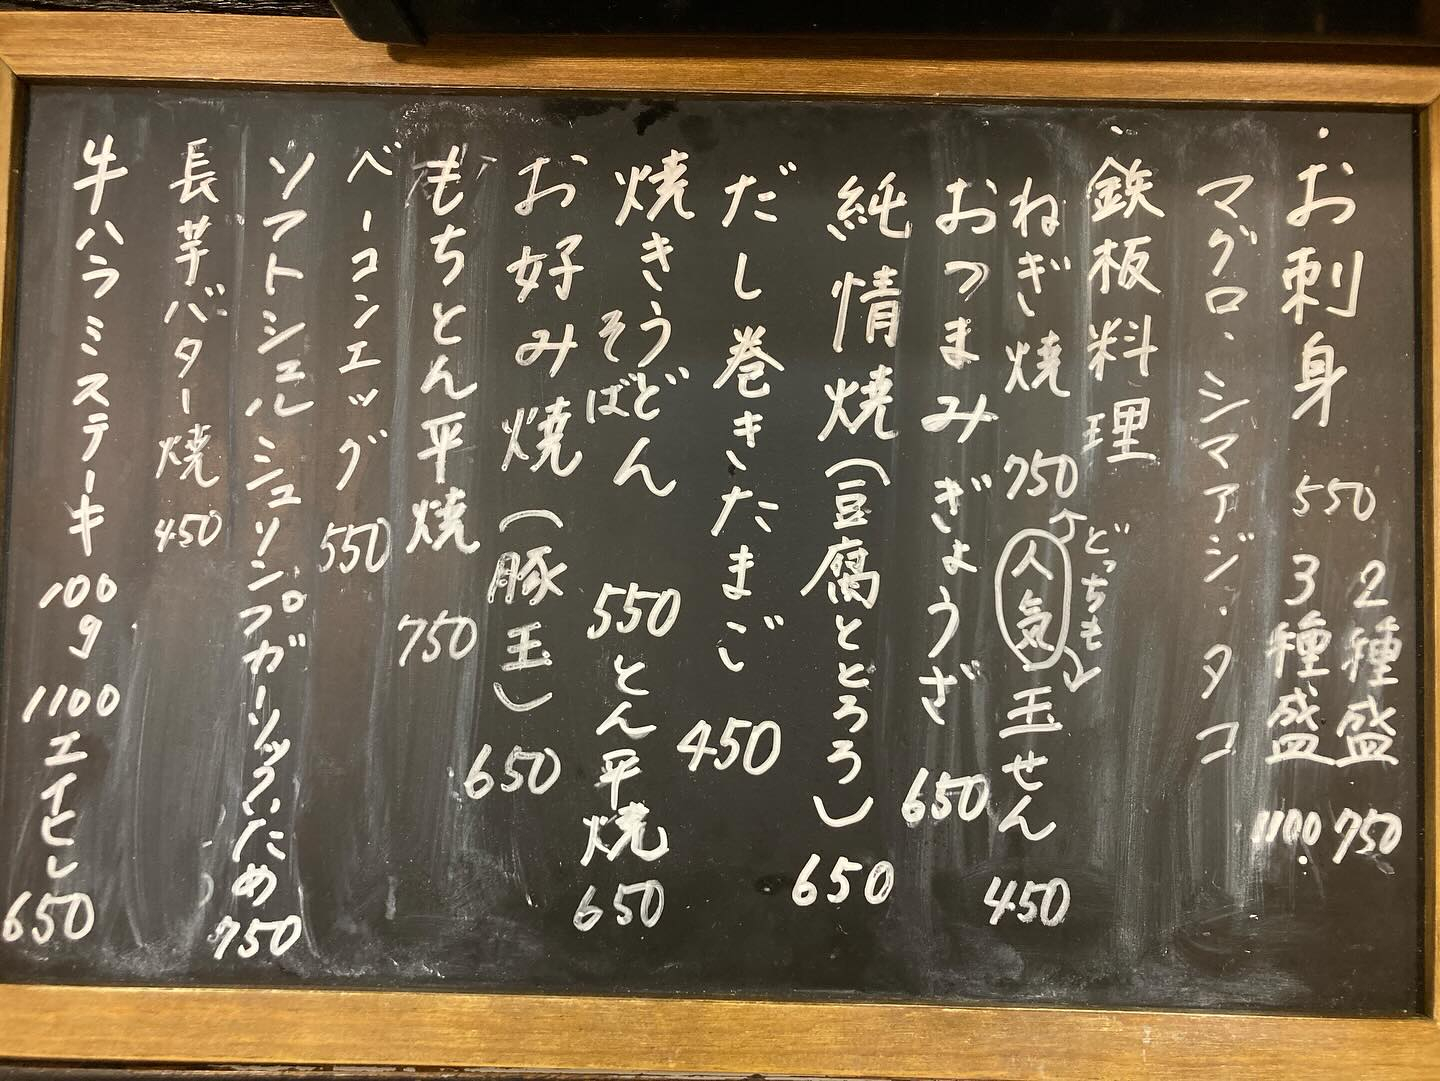 ・お刺身 550 2種盛 750
3種盛 1100
マグロ・シマアジ・タコ
・鉄板料理
ねぎ焼 750 どっちも 人気 玉せん 450
おつまみぎょうざ 650
純情焼(豆腐ととろろ) 650
だし巻きたまご 450
焼きうどん そば 550 とん平焼 650
お好み焼(豚玉) 650
もちとん平焼 750
ベーコンエッグ 550
ソフトシェルシュリンプガーリックいため 750
長芋バター焼 450
牛ハラミステーキ 100g 1100 エイヒレ 650